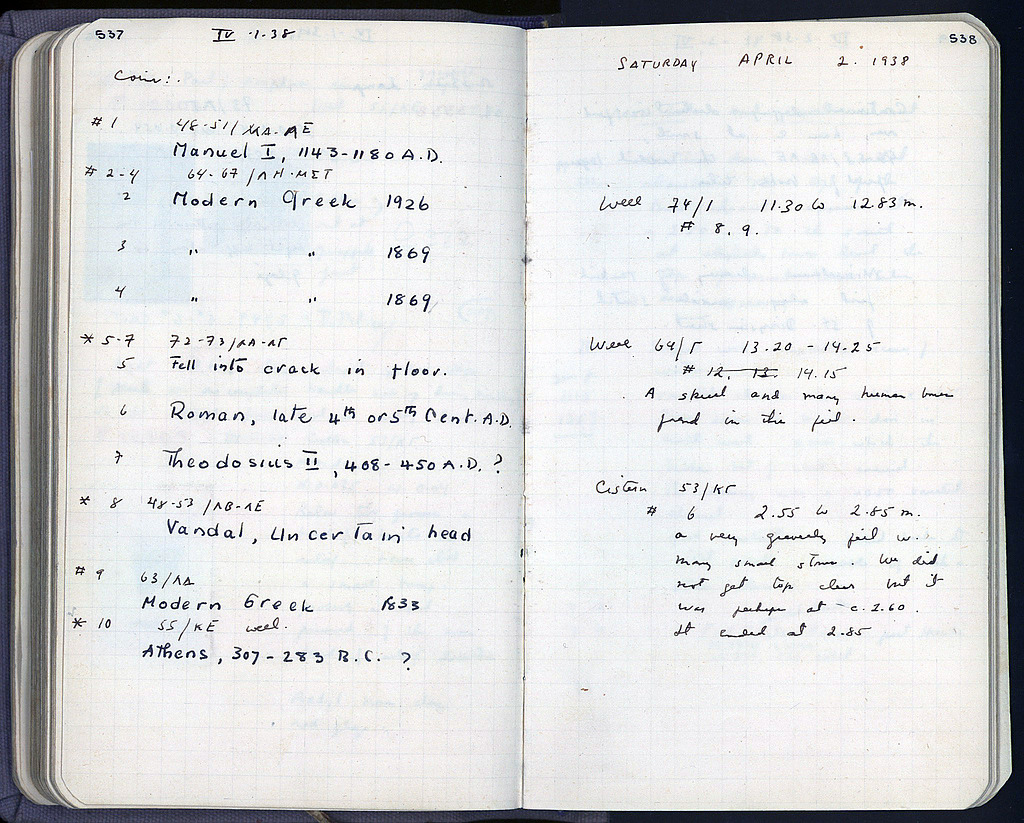 537
IV ·1·38
Coins:
# 1 48-51/ΛΑ-ΛΕ
Manuel I, 1143-1180 A.D.
# 2-4 64-67/ΛΗ-ΜΣΤ
2 Modern Greek 1926
3 " " 1869
4 " " 1869
* 5-7 72-73/
5 Fell into crack in floor.
6 Roman, late 4th or 5th Cent. A.D.
7 Theodosius II, 408-450 A.D. ?
* 8 48-53/ΛΒ-ΛΕ
Vandal, Uncertain head
# 9 63/ΛΔ
Modern Greek 1833
* 10 55/ΚΕ well.
Athens, 307-283 B.C. ?
538
SATURDAY APRIL 2. 1938
Well 74/1 11.30 to 12.83 m.
# 8. 9.
Well 64/Γ 13.20 - 14.25
# 12. 13. 14.15
A skull and many human bones
found in this fill.
Cistern 53/ΚΓ
# 6 2.55 to 2.85 m.
a very gravelly fill w.
many small stones. We did
not get top clear but it
was perhaps at -c. 2.60.
It ended at 2.85